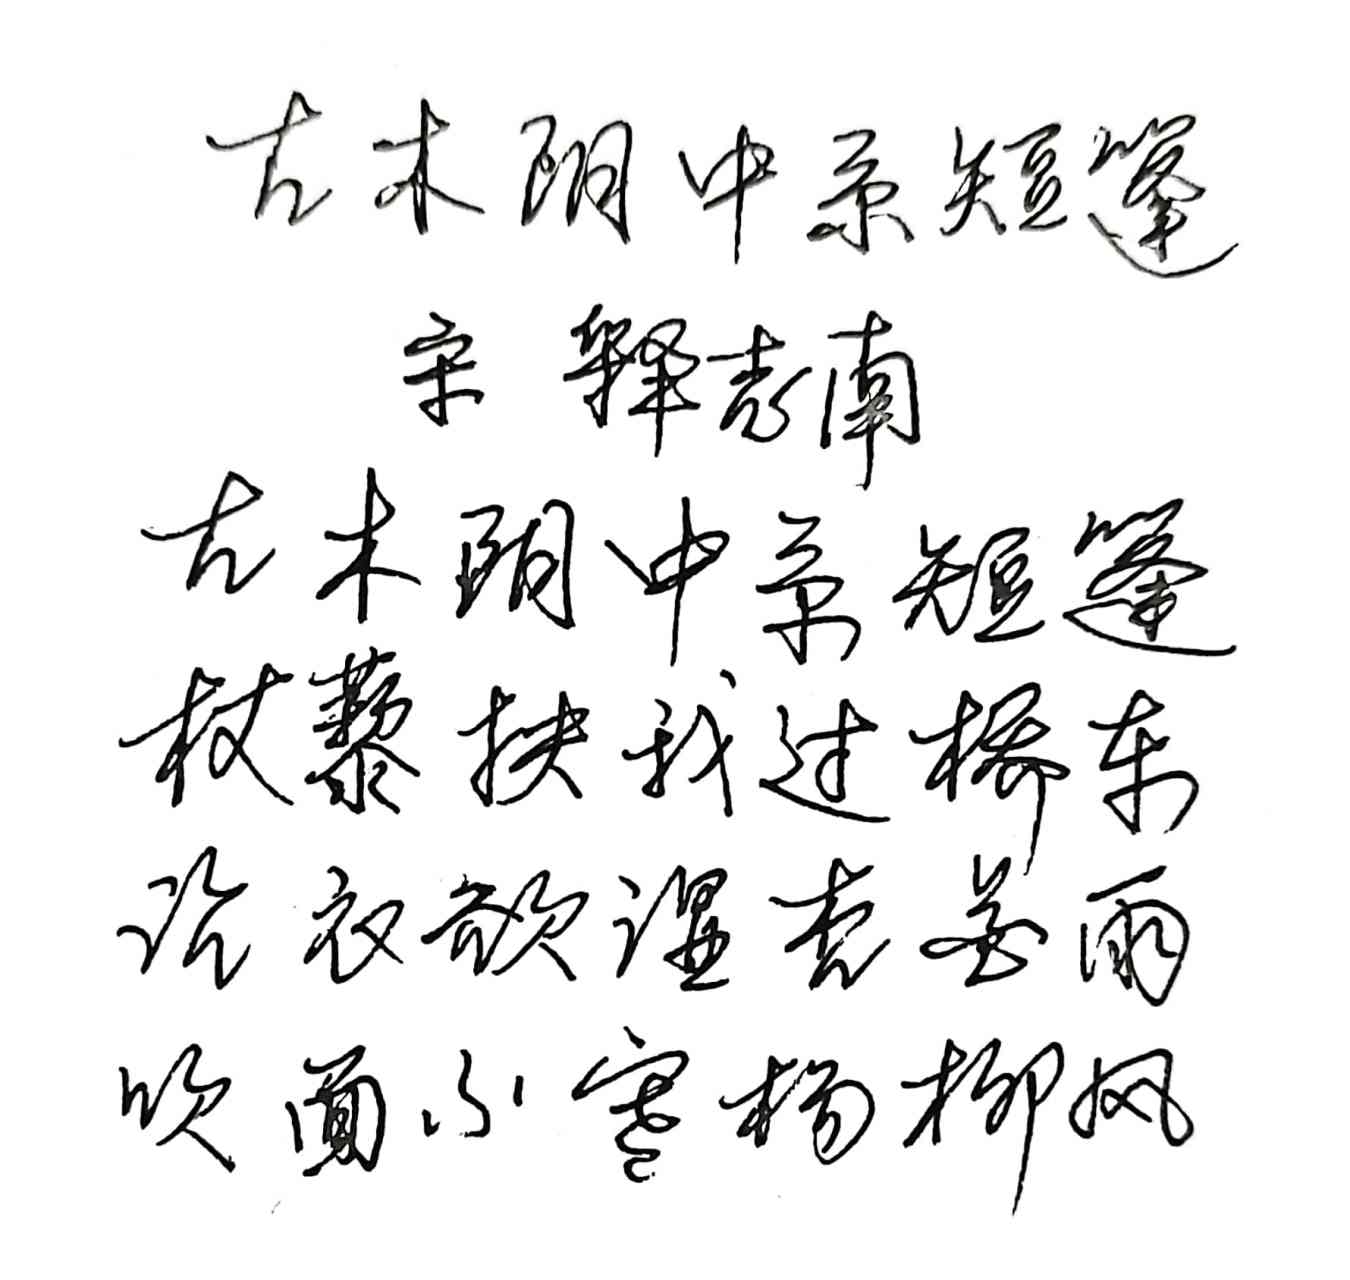 古木阴中系短篷
宋 释志南
古木阴中系短篷
杖藜扶我过桥东
沾衣欲湿杏花雨
吹面不寒杨柳风